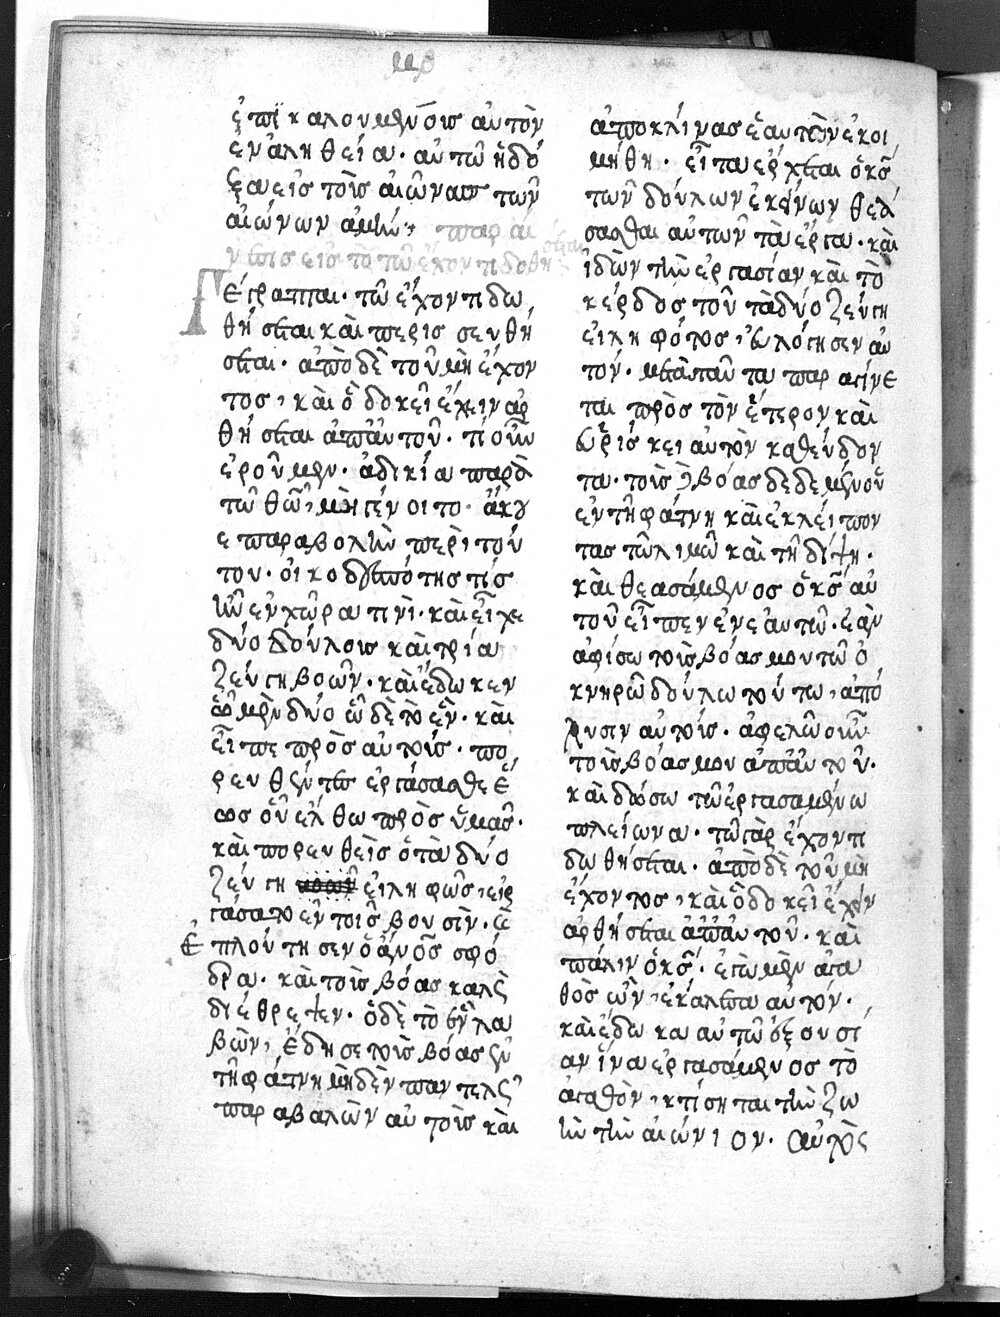 ἐπϊκαλουμένοις αὐτὸν
ἐν ἀληθεία· αὐτῶ ἡ δό
ξα εἰς τοὺς αἰῶνας τῶν
αἰώνων ἀμήν· παραί
νεσις εἰς τὸ τῶ ἔχοντι δοθήσεται
Γέγραπται· τῶ ἔχοντι δω
θήσεται καὶ περισσευθή
σεται· ἀπὸ δὲ τοῦ μὴ ἔχον
τος, καὶ ὃ δοκεῖ ἔχειν ἀρ
θήσεται ἀπ᾽ αὐτοῦ· τί οὖν
ἐροῦμεν· ἀδικία παρὰ
τῶ θῶ, μὴ γένοιτο· ἄκου
ε παραβολὴν περὶ τού
του· οἰκοδεσπότης τίς
ἦν ἐν χώρα τινί· καὶ εἶχε
δύο δούλους καὶ τρία
ζεύγη βοῶν· καὶ ἔδωκεν
ὧ μὲν δύο ὧ δὲ τὸ ἕν· καὶ
εἶπε πρὸς αὐτούς· πο
ρευθέντες ἐργάσασθε ἕ
ως οὗ ἔλθω πρὸς ὑμᾶς·
καὶ πορευθεὶς ὁ τὰ δύο
ζεύγη εἰληφῶς, εἰρ
γάσατο ἐν τοῖς βουσίν· καὶ
ἐπλούτησεν ὁ ἄνος σφό
δρα· καὶ τοὺς βόας καλῶς
διέθρεψεν· ὁ δὲ τὸ ἓν λα
βὼν, ἔδησε τοὺς βόας ἐν
τῆ φάτνη μηδὲν παντελῶς
παραβαλὼν αὐτοῖς καὶ
ἀποκλίνας ἑαυτὸν ἐκοι
μήθη· εἶτα ἔρχεται ὁ κς
τῶν δούλων ἐκείνων θεά
σασθαι αὐτῶν τὰ ἔργα· καὶ
ἰδὼν τὴν ἐργασίαν καὶ τὸ
κέρδος τοῦ τὰ δύο ζεύγη
εἰληφότος, εὐλόγησεν αὐ
τόν· μετὰ ταῦτα παραγίνε
ται πρὸς τὸν ἕτερον καὶ
εὑρίσκει αὐτὸν καθεύδον
τα· τοὺς βόας δεδεμένους
ἐν τῆ φάτνη καὶ ἐκλείπον
τας τῶ λιμῶ καὶ τῆ δίψη·
καὶ θεασάμενος ὁ κς αὐ
τοῦ εἶπεν ἐν ἑαυτῶ· ἐὰν
ἀφίσω τοὺς βόας μου τῶ ὀ
κνηρῶ δούλω τούτω, ἀπό
λυσιν αὐτοῖς· ἀφελῶ οὖν
τοὺς βόας μου ἀπ᾽ αὐτοῦ·
καὶ δώσω τῶ ἐργασαμένω
πλείωνα· τῶ γὰρ ἔχοντι
δωθήσεται· ἀπὸ δὲ τοῦ μὴ
ἔχοντος, καὶ ὃ δοκεῖ ἔχειν
ἀρθήσεται ἀπ᾽ αὐτοῦ· καὶ
πάλιν ὁ κς· ἐγὼ μὲν ἀγα
θὸς ὢν, ἐκάλεσα αὐτόν·
καὶ ἔδωκα αὐτῶ ἐξουσί
αν ἵνα ἐργασάμενος τὸ
ἀγαθὸν, κτίσηται τὴν ζω
ὴν τὴν αἰώνιον· αὐτὸς